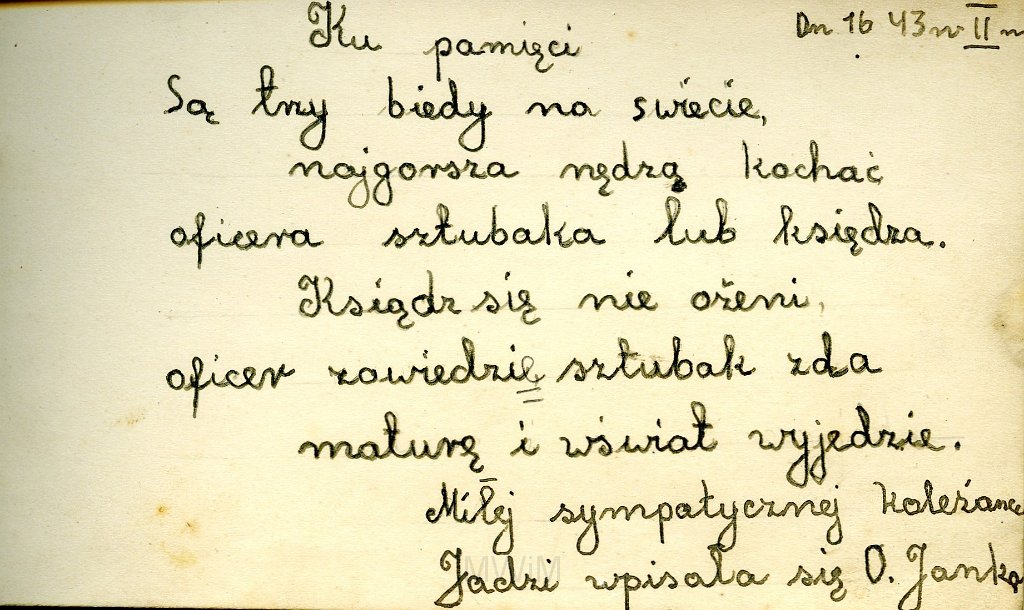 Dn 16 43 w II m
Ku pamięci
Są trzy biedy na swiecie,
najgorsza nędzą kochać
oficera sztubaka lub księdza.
Ksiądz się nie ożeni,
oficer zawiedzie sztubak zda
maturę i wświat wyjedzie.
Miłej sympatycznej koleżance
Jadzi wpisała się O. Janka
MWiM